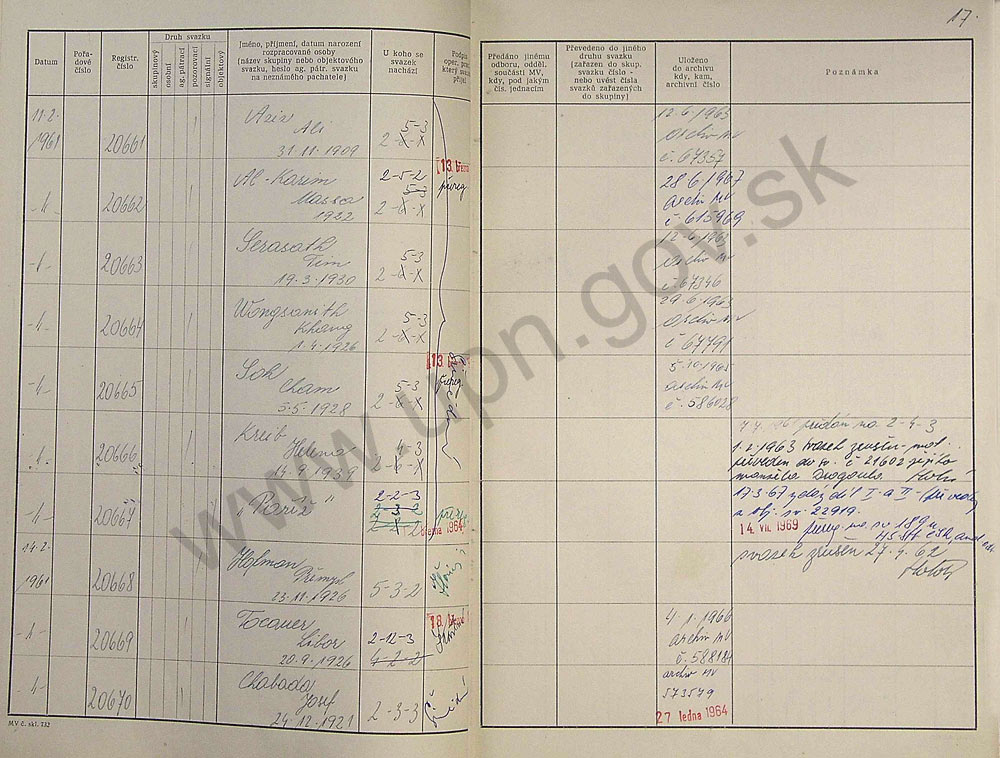 17.
Datum
Pořa-
dové
číslo
Registr.
číslo
Druh svazku
skupinový
osobní
ag.pátrací
pozorovací
signální
objektový
Jméno, příjmení, datum narození
rozpracované osoby
(název skupiny nebo objektového
svazku, heslo ag. pátr. svazku
na neznámého pachatele)
U koho se
svazek
nachází
Podpis
oper. prac.
který svazek
přijal
Předáno jinému
odboru, odděl.
součásti MV,
kdy, pod jakým
čís. jednacím
Převedeno do jiného
druhu svazku
[zařazen do skup.
svazku číslo -
nebo uvést čísla
svazků zařazených
do skupiny]
Uloženo
do archívu
kdy, kam,
archivní číslo
Poznámka
11.2.
1961
20661
Aziz
Ali
31.11.1909
5-3
2-6-X
12.6.1963
archiv MV
č. 67357
-"-
20662
Al-Karim
Massa
1932
2-5-2
5-3
2-6-X
13. března
přereg
28.6.1967
archiv MV
č. 610969
-"-
20663
Serasath
Tem
19.3.1930
5-3
2-6-X
12.6.1963
archiv MV
č. 67346
-"-
20664
Wongsanith
Khamg
1.4.1926
5-3
2-6-X
29.6.1963
archiv MV
č. 67791
-"-
20665
Sok
Cham
5.5.1928
5-3
2-6-X
13.
5.10.1965
archiv MV
č. 586028
-"-
20666
Kreib
Helena
14.9.1939
4-3
2-6-X
předán na 2-4-3
1.2.1963 svazek zrušen
převeden do sv. č 21602 jejího
manžela
-"-
20667
"Paříž"
2-2-3
března 1964
17.3.67
a obj. sv 22919.
14. VII. 1969
14.2.
1961
20668
Hofman
Přemysl
23.11.1926
5-3-2
svazek zrušen 27.4.62
-"-
20669
Tocauer
Libor
20.9.1926
2-12-3
4-2-2
18.
4.1.1966
archiv MV
č. 588184
-"-
20670
Chabada
Josef
24.12.1921
2-3-3
archiv MV
573579
27 ledna 1964
MV č. skl. 732
www.upn.gov.sk